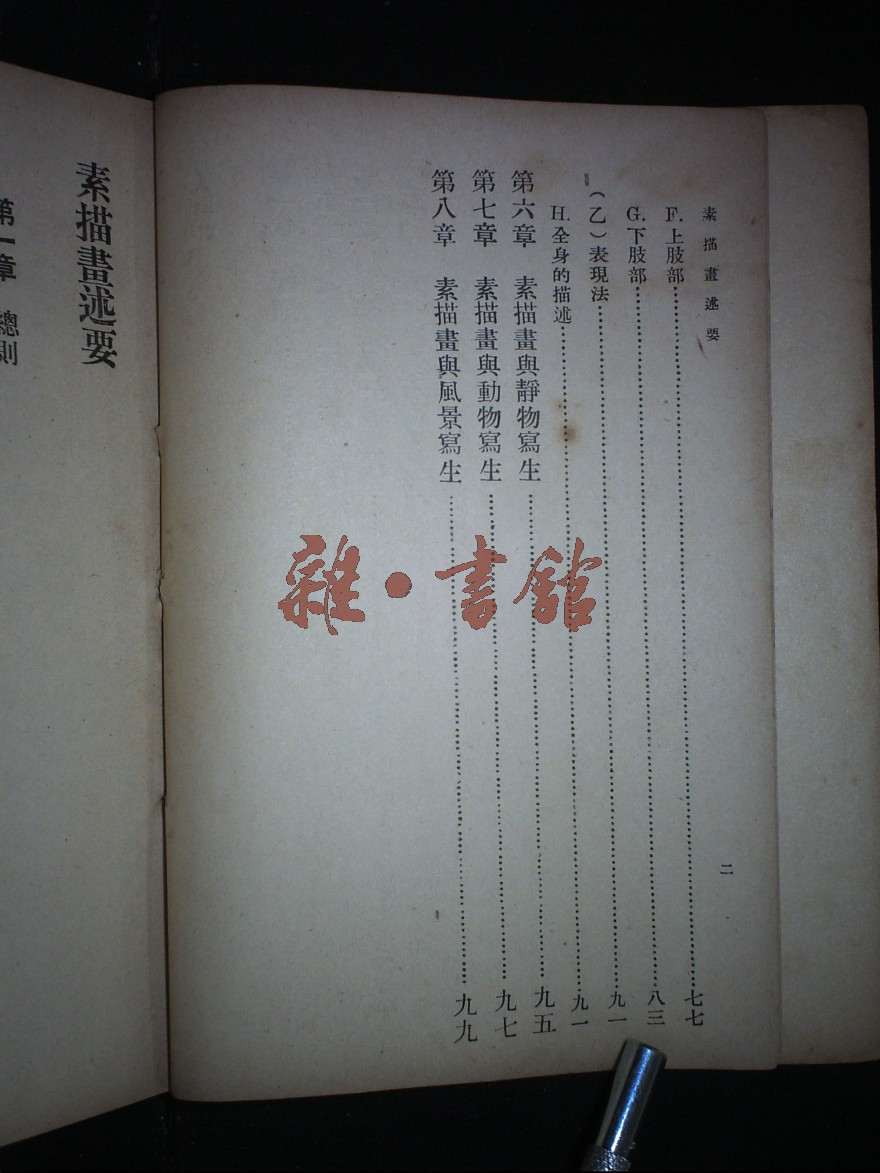 素描畫述要
F.上肢部……七七
G.下肢部……八三
(乙)表現法……九一
H.全身的描述……九一
第六章 素描畫與靜物寫生……九五
第七章 素描畫與動物寫生……九七
第八章 素描畫與風景寫生……九九
二
素描畫述要
第一章 總則
雜•書館